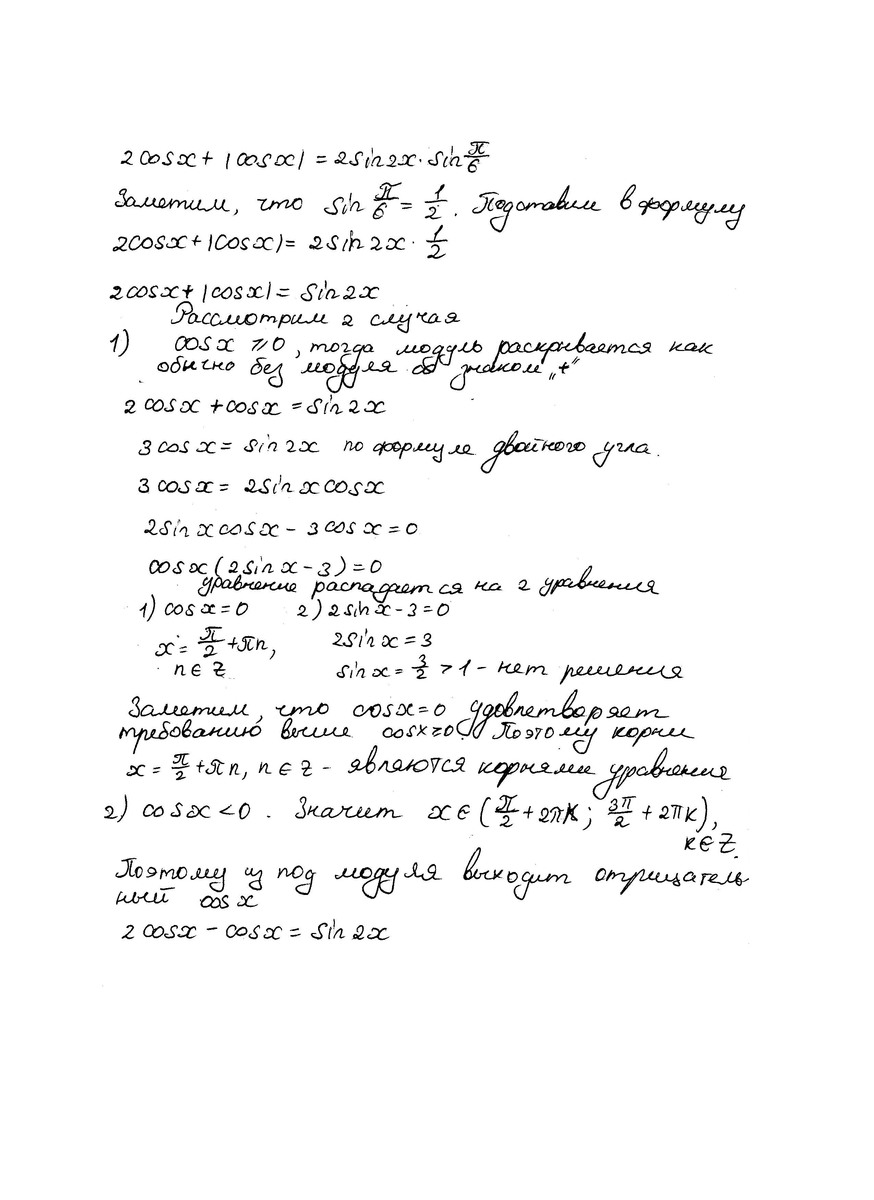 2cosx + |cosx| = 2sin2x · sin π/6
Заметим, что sin π/6 = 1/2. Подставим в формулу
2cosx + |cosx| = 2sin2x · 1/2
2cosx + |cosx| = sin2x
Рассмотрим 2 случая
1) cosx ⩾ 0, тогда модуль раскрывается как
обычно без модуля со знаком „+“
2cosx + cosx = sin2x
3cosx = sin2x по формуле двойного угла.
3cosx = 2sinxcosx
2sinxcosx - 3cosx = 0
cosx(2sinx - 3) = 0
уравнение распадается на 2 уравнения
1) cosx = 0 2) 2sinx - 3 = 0
x = π/2 + πn, 2sinx = 3
n ∈ Z sinx = 3/2 > 1 - нет решения
Заметим, что cosx = 0 удовлетворяет
требованию выше cosx ⩾ 0. Поэтому корни
x = π/2 + πn, n ∈ Z - являются корнями уравнения
2) cosx < 0. Значит x ∈ (π/2 + 2πk; 3π/2 + 2πk),
k ∈ Z.
Поэтому из под модуля выходит отрицатель
ный cosx
2cosx - cosx = sin2x